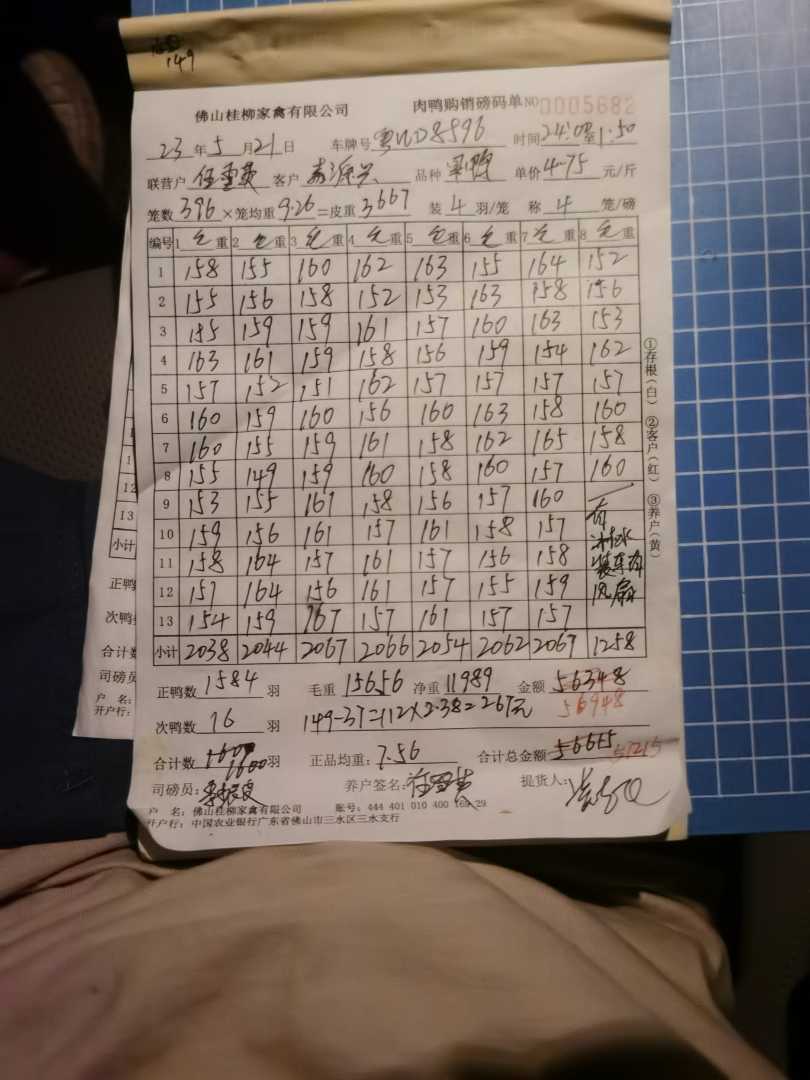 149
佛山桂柳家禽有限公司 肉鸭购销磅码单 NO 0005682
23年5月21日 车牌号 时间24:00至1:50
联营户 客户 品种 单价4.75元/斤
笼数396×笼均重9.26=皮重3667 装4羽/笼 称4笼/磅
编号 1 毛重 2 毛重 3 毛重 4 毛重 5 毛重 6 毛重 7 毛重 8 毛重
1 158 155 160 162 163 155 164 152
2 155 156 158 152 153 163 158 156
3 155 159 159 161 157 160 163 153
4 163 161 159 158 156 159 154 162
5 157 152 151 162 157 157 157 157
6 160 159 160 156 160 163 158 160
7 160 155 159 161 158 162 165 158
8 155 149 159 160 158 160 157 160
9 153 155 161 158 156 157 160
10 159 156 161 157 161 158 157
11 158 164 157 161 157 156 158
12 157 164 156 161 157 155 159
13 154 159 167 157 161 157 157
小计 2038 2044 2067 2066 2054 2062 2067 1258
有
冲水
装车
风扇
①存根(白) ②客户(红) ③养户(黄)
正鸭数1584羽 毛重15656 净重11989 金额56348
56948
次鸭数16羽 149-37=112×2.38=267元
合计数1600羽 正品均重:7.56 合计总金额56615
57215
司磅员: 养户签名: 提货人:
户 名: 佛山桂柳家禽有限公司 账号: 444 401 010 400 169 29
开户行: 中国农业银行广东省佛山市三水区三水支行
1
12
13
小计
正鸭
次鸭
合计数
司磅员
户 名:
开户行: